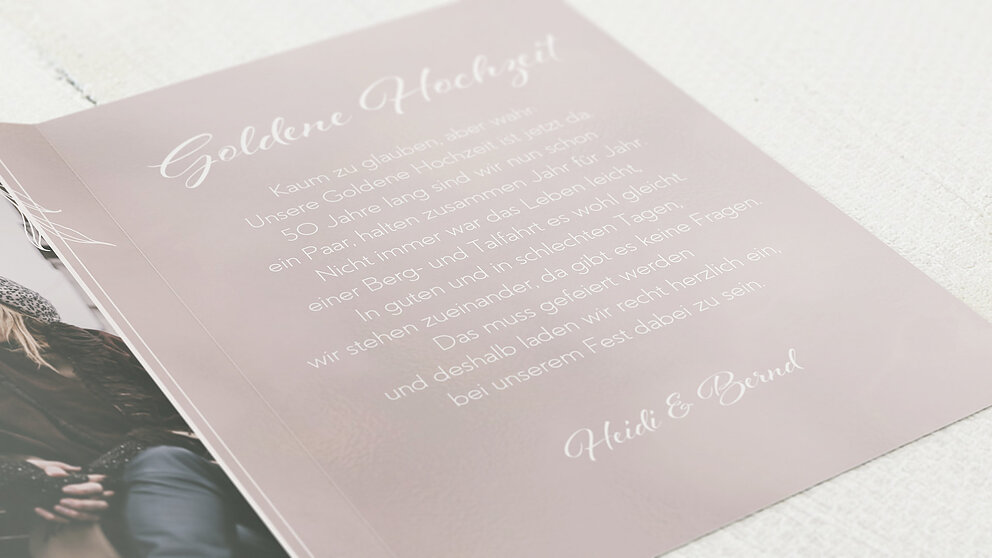 Goldene Hochzeit
Kaum zu glauben, aber wahr.
Unsere Goldene Hochzeit ist jetzt da.
50 Jahre lang sind wir nun schon
ein Paar, halten zusammen Jahr für Jahr.
Nicht immer war das Leben leicht,
einer Berg- und Talfahrt es wohl gleicht.
In guten und in schlechten Tagen,
wir stehen zueinander, da gibt es keine Fragen.
Das muss gefeiert werden
und deshalb laden wir recht herzlich ein,
bei unserem Fest dabei zu sein.
Heidi & Bernd